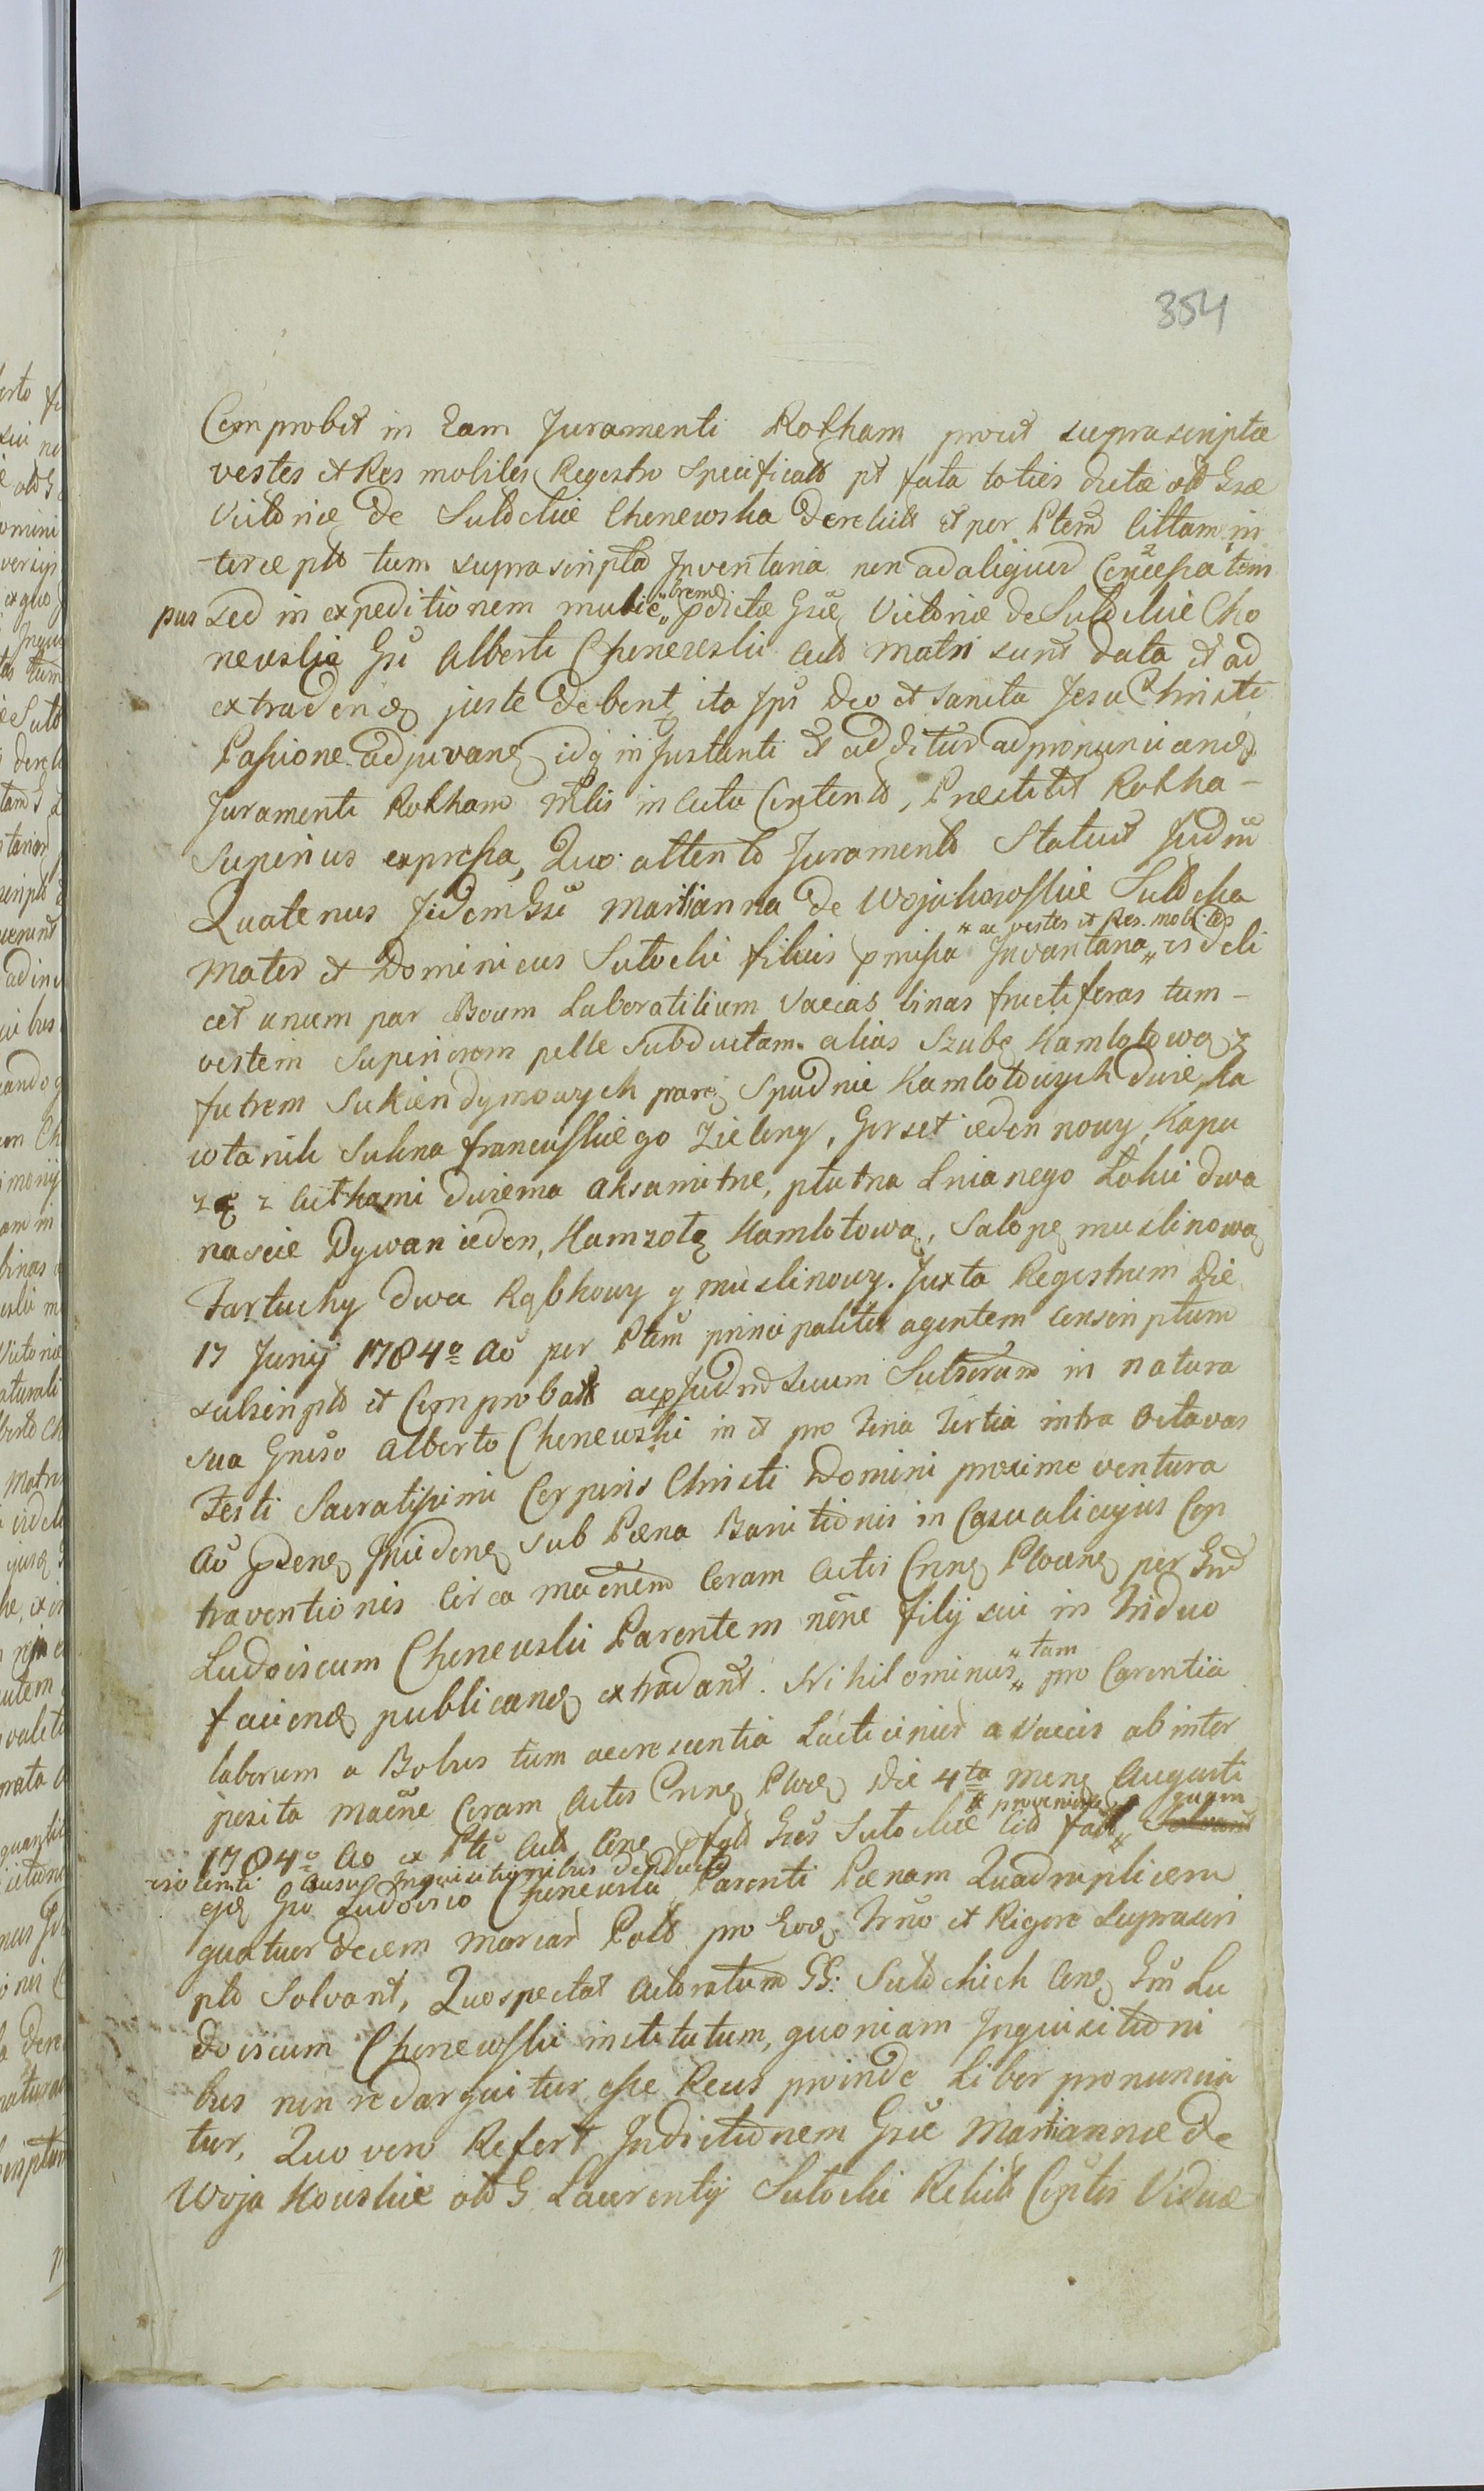 354
Comprobet in Eam Juramenti Rotham prout suprascriptæ
vestes et Res mobiles Regestro Specificatæ pt fata toties dictæ olð Gsæ
Victoriæ de Sutockie Chenewska derelictæ et per Ptem Cittam in
terceptæ tum suprascripta Inventaria non ad aliquod Concessa tem
pus sed in expeditionem muliebrem pdictæ Gsæ Victoriæ de Sutockie Cho
newskie Gsi Alberti Chenewski Acto Matri sunt data et ad
extradend juste debent, ita Ips Deo et Sancta Jesu Christi
Passione adjuvane idq in Instanti et additur ad pronunciand
Juramenti Rotham Mlis in Actu Contento, Præstitit Rotha-
Superius expressa, Quo attento Juramento Statuit Judm
Quatenus Iidem Gsi Marianna de Wojakowskie Sutocka
" ac vestes et Res mobiles
Mater et Dominicus Sutocki filius pmissa Invantaria " videli
cet unum par Boum Laboratilium Vaccas binas fructiferas tum-
vestem Superiorem pelle subductam alias Szubę Kamlotową z
futrem Sukien dymowych parę Spudnic Kamlotowych dwie, Ka
wtanik Sukna francuskiego Zielony, Gorset ieden nowy, Kapu
zę z Aczkami dwiema aksamitne, płutna Lnianego Łokci dwa
nascie Dywan ieden, Kamzolę Kamlotową, Salopę muslinową
Fartuchy dwa Rąbkowy y muslinowy. Juxta Regestrum Die
17 Junij 1784o Ao per Ptem principaliter agentem conscriptum
subscripto et Comprobatæ acp Judm suum Subscrum in natura
sua Gneso Alberto Chenewski in et pro Feria Tertia intra Octavas
Festi Sacratissimi Corporis Christi Domini proxime ventura
Ao pdene Inciden sub Pæna Banitionis in Casu alicujus Con
traventionis Circa Macnem Coram Actis Cnne Plocen per Gsm
Ludovicum Chenewski Parentem nene filij sui in Triduo
faciend publicand extradant. Nihilominus " tam pro Carentia
laborum a Bobus tum accrescentia Lacticinior a Vaccis ab inter
posita Macne Coram Actis Cnne Ploce Die 4ta Mene Augusti
1784o Ao ex Pte Acto Cone pfato Gsos Sutockie " provenien quam
violenti Ausu Inquisitionibus deducto
eje Gso Ludovico Chenewski Parenti Pænam Quadruplicem
quatuordecim Marcar Polo pro Eod Trno et Rigore supra scri
pto Solvant, Quo spectat Actoratum GG: Sutockich Con Gsm Lu
dovicum Chenewski institutum, quoniam Inquisitioni
bus non redarguitur esse Reus proinde Liber pronuncia
tur, Quo vero Refert Inditionem Gsæ Mariannæ de
Wojakowskie olð G Laurentij Sutocki Relictæ Cnptis Viduæ